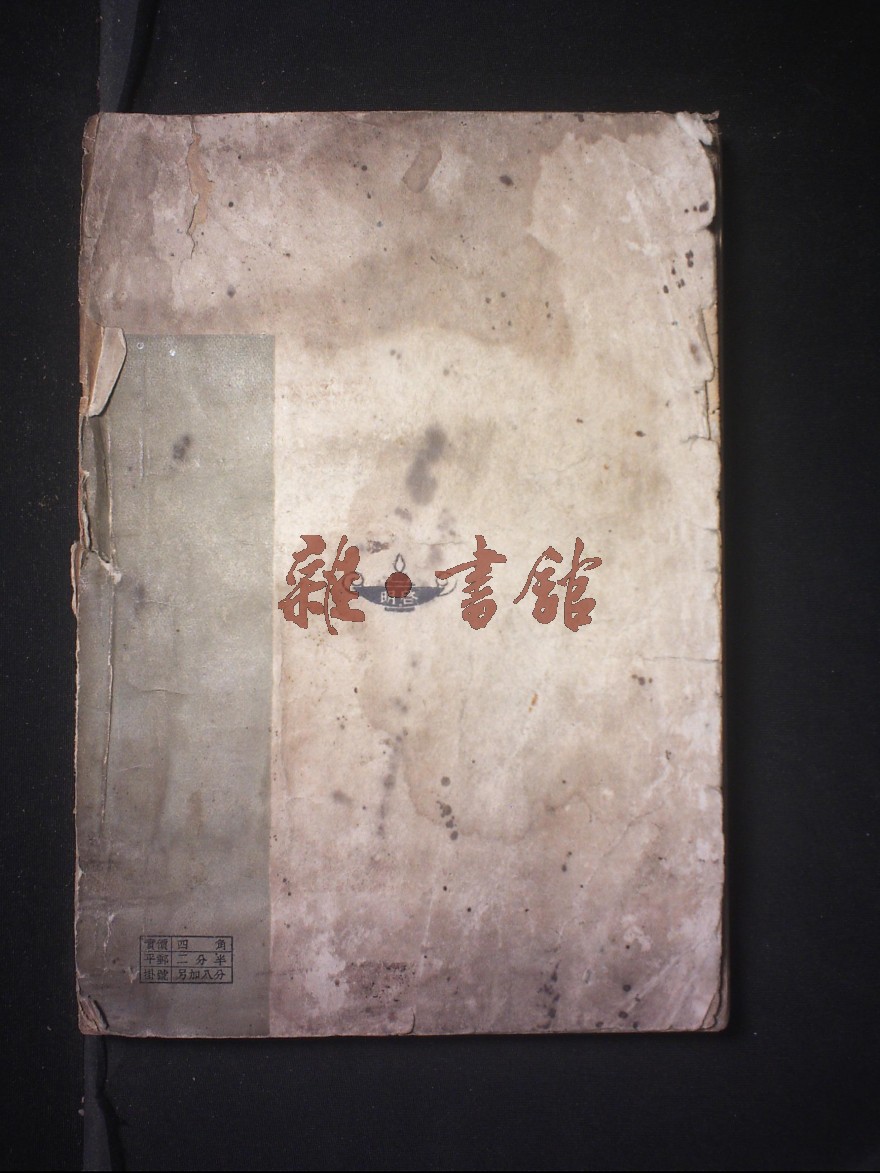 雜·書館
明啓
實價 四角
平郵 二分半
掛號 另加八分